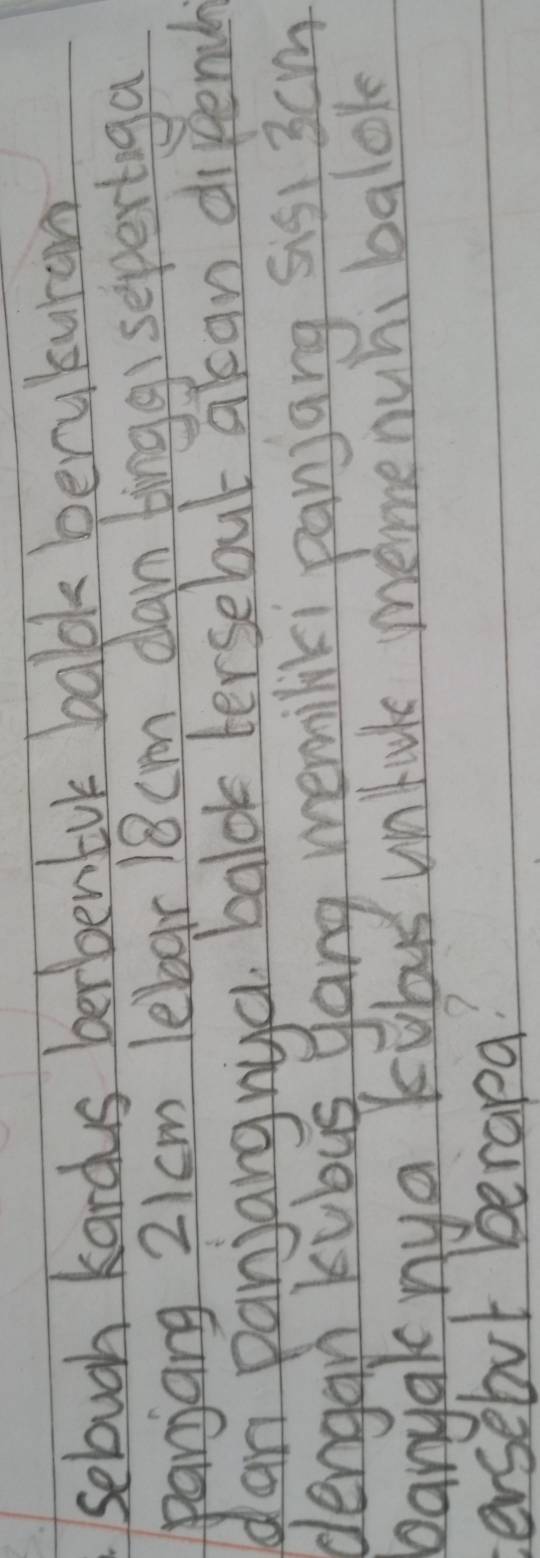 Sebuah kardus berbentuk balok berukuran
panjang 21cm lebar 18cm dan tinggi sepertiga
dari panjangnya. balok tersebut akan dipenuhi
dengan kubus yang memiliki panjang sisi 3cm
banyak nya kubus untuk memenuhi balok
tersebut berapa?